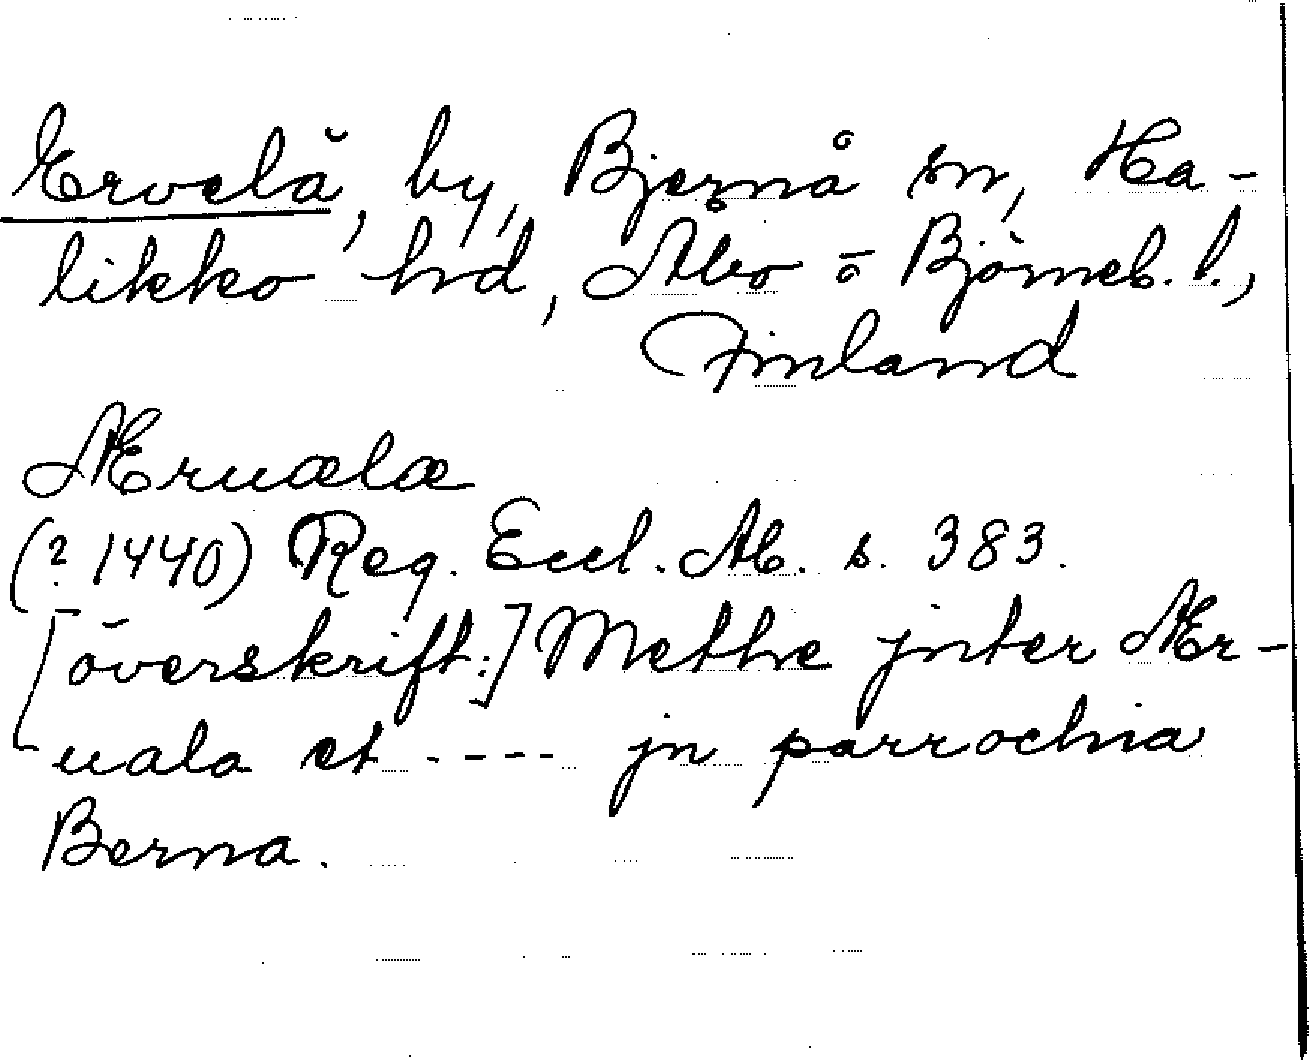 Ervelä, by, Bjernå sn, Ha-
likko hd, Åbo o Björneb. l.,
Finland
Æruælæ
(? 1440) Reg. Eccl. Ab. s. 383.
[överskrift:] Methe jnter Ær-
uala et ---- jn parrochia
Berna.